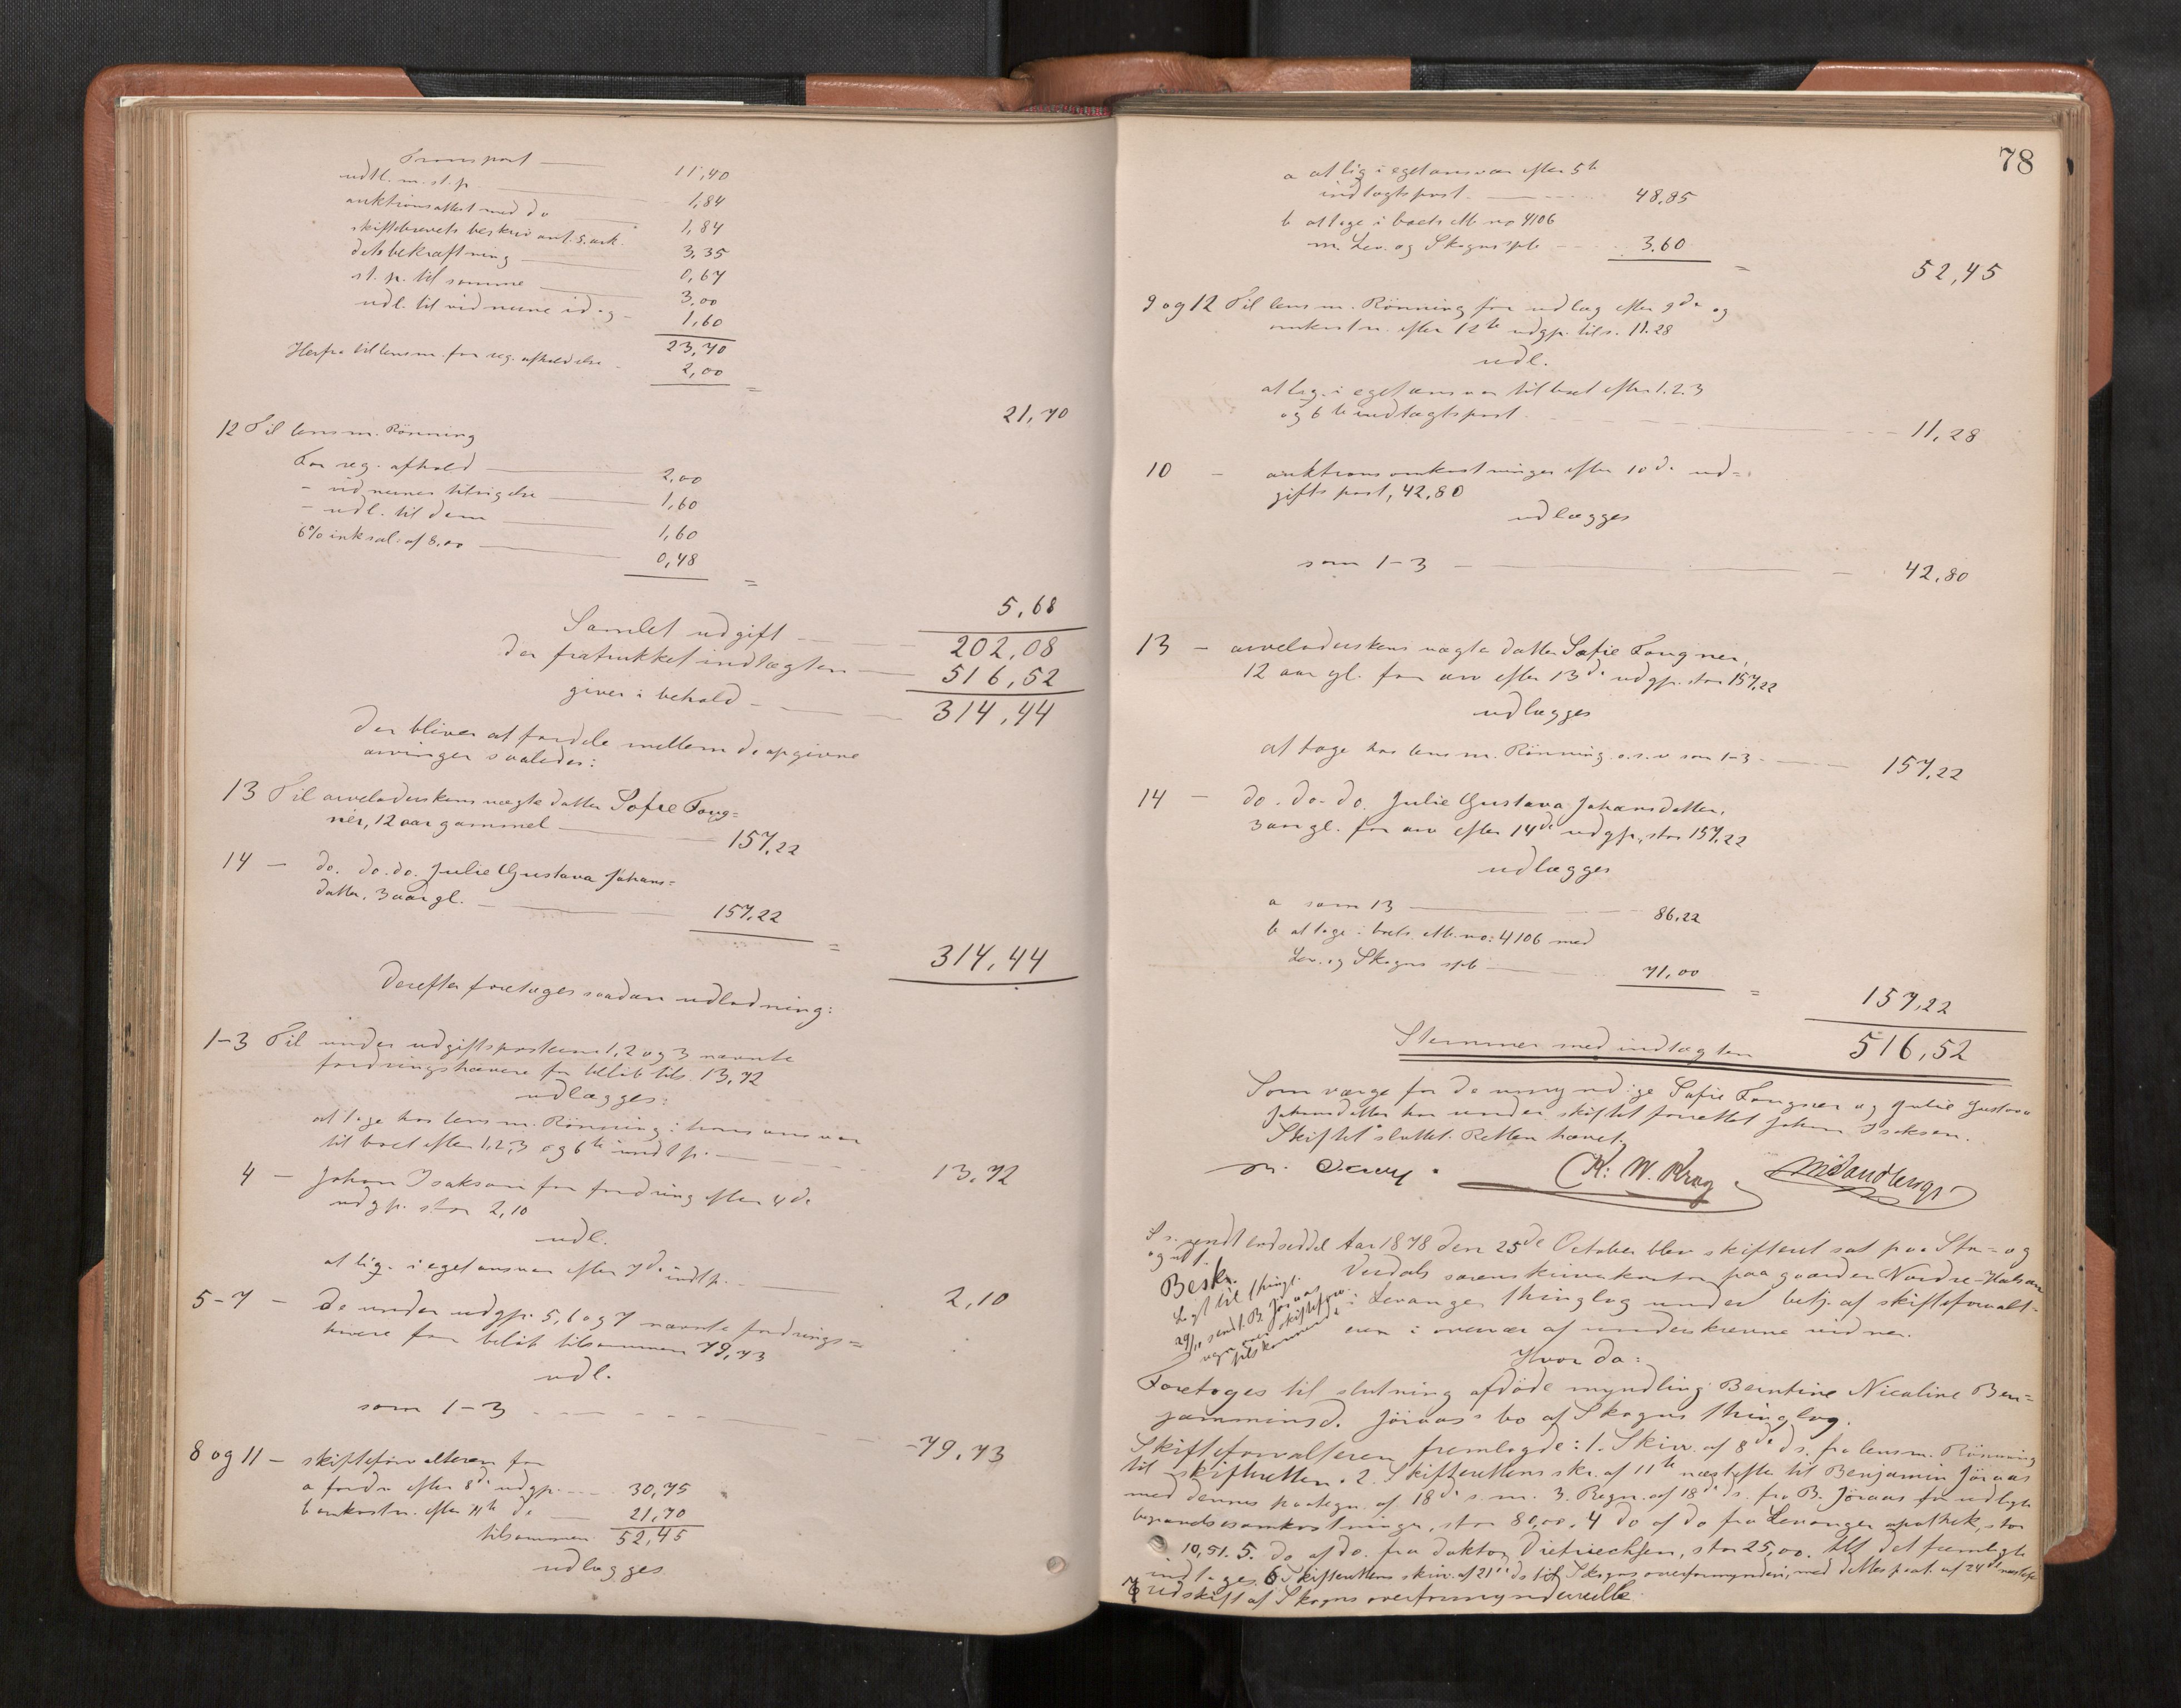 Transport 11,40
udtl. m. st. p. 1,84
auktionsattest med do 1,84
skiftebrevets beskriv. ant. 5. ark. 3,35
dets bekræftning 0,67
st. p. til samme 3,00
udl. til vidnerne id. 1,60
23,70
Herfra til lensm. for reg. afholdelse 2,00 =
21,70
12 Til lensm. Rönning
For reg. afhold 2,00
- vidnernes tilsigelse 1,60
- udl. til dem 1,60
6% inksal. af 8,00 0,48 =
5,68
Samlet udgift 202,08
der fratrukket indtægten 516,52
giver i behold 314,44
der bliver at fordele mellem de opgivne
arvinger saaledes:
13 Til arveladerskens ægte datter Sofie Foug=
ner, 12 aar gammel 157,22
14 - do. do. do. Julie Gustava Johans=
datter, 3 aar gl. 157,22 =
314,44
Derefter foretages saadan udlodning:
1-3 Til under udgiftsposterne 1, 2 og 3 nævnte
fordringshavere for beløb tils. 13,72
udlægges:
at tage hos lensm. Rönning i hans ansvar
til boet efter 1, 2, 3 og 6te indt. p.
13,72
4 - Johan Isaksen for fordring efter 4de
udgp. stor 2,10
udl.
at lig. i eget ansvar efter 7de indtp.
2,10
5-7 - De under udgp. 5, 6 og 7 nævnte fordrings=
havere for beløb tilsammen 79,73
udl.
som 1-3
79,73
8 og 11 - skifteforvalteren for
a fordr. efter 8de udgp. 30,75
b omkostn. efter 11te do 21,70
tilsammen 52,45
udlægges
78
a at lig. i eget ansvar efter 5te
indtægtspost 48,85
b at tage i boets attb no 4106
m. Lev. og Skogns spb 3,60 =
52,45
9 og 12 Til lensm. Rönning for udlæg efter 9de og
omkostn. efter 12te udgp. tils. 11.28
udl.
at lig. i eget ansvar til boet efter 1. 2. 3
og 6te indtægtspost
11,28
10 - auktionsomkostninger efter 10de ud=
gifts post, 42,80
udlægges
som 1-3 42,80
13 - arveladerskens ægte datter Sofie Fougner,
12 aar gl. for arv efter 13de udgp. stor 157,22
udlægges
at tage hos lensm. Rönning o.s.v som 1-3 157,22
14 - do. do. do. Julie Gustava Johansdatter,
3 aar gl. for arv efter 14de udgp., stor 157,22
udlægges
a som 13 86,22
b at tage i boets attb. no: 4106 med
Lev. og Skogns spb 71,00 =
157,22
Stemmer med indtægten 516,52
Som værge for de umyndige Sofie Fougner og Julie Gustava
Johansdatter har under skiftet forrettet Johan Isaksen.
Skiftet sluttet. Retten hævet.
K: W. Krog MSandberg
Aar 1878 den 25de October blev skifteret sat paa Stør- og
Værdals sorenskriverkontor paa gaarden Nordre-Halsan
i Levanger thinglag under betj. af skifteforvalt=
eren i overvær af underskrevne vidner.
Beskr.
Lagt til thingl.
Hvor da:
Foretoges til slutning afdøde myndling Berntine Nicaline Ben=
jaminsd. Jöraas's bo af Skogns thinglag.
Skifteforvalteren fremlagde: 1. Skriv. af 8de ds. fra lensm. Rönning
til skifteretten. 2. Skifterettens skr. af 11te næstefter til Benjamin Jöraas
med dennes paategn. af 18de s. m. 3. Regn. af 18de ds. fra B. Jöraas for udlagte
begravelsesomkostninger, stor 80,00. 4 do af do fra Levanger apothek, stor
10,51. 5. do af do. fra doktor Dietrichsen, stor 25,00. Alt det fremlagte
indtages. 6 Skifterettens skriv. af 21de ds til Skogns overformynderi, med dettes paat. af 24de næstefter
7 Udskrift af Skogns overformynderi